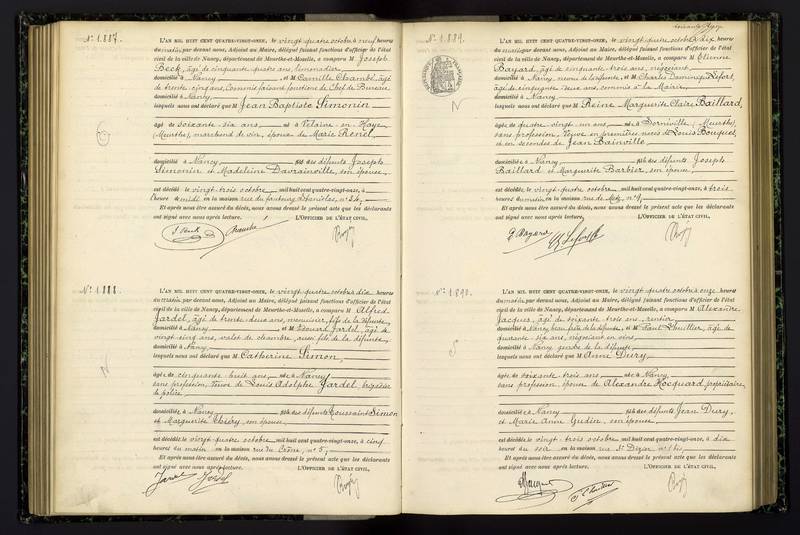 N° 1.887.
L'AN MIL HUIT CENT QUATRE-VINGT-ONZE, le vingt quatre octobre à neuf heures
du matin par devant nous, Adjoint au Maire, délégué faisant fonctions d'officier de l'état
civil de la ville de Nancy, département de Meurthe-et-Moselle, a comparu M Joseph
Beck, âgé de cinquante quatre ans, limonadier
domicilié à Nancy et M Camille Chambé, âgé
de trente cinq ans, Commis faisant fonctions de Chef de Bureau
domicilié à Nancy
lesquels nous ont déclaré que M Jean Baptiste Simonin
âgé de soixante six ans né à Velaine en Haye
(Meurthe), marchand de vin, époux de Marie Renel
domicilié à Nancy fils des défunts Joseph
Simonin et Madeleine Davrainville, son épouse,
est décédé le vingt trois octobre mil huit cent quatre-vingt-onze, à
l'heure de midi en la maison rue du faubourg Stanislas, n° 54,
Et après nous être assuré du décès, nous avons dressé le présent acte que les déclarants
ont signé avec nous après lecture. L'OFFICIER DE L'ÉTAT CIVIL,
J Beck Chambé
N° 1.888.
L'AN MIL HUIT CENT QUATRE-VINGT-ONZE, le vingt quatre octobre dix heures
du matin par devant nous, Adjoint au Maire, délégué faisant fonctions d'officier de l'état
civil de la ville de Nancy, département de Meurthe-et-Moselle, a comparu M Alfred
Jardel, âgé de trente deux ans, menuisier, fils de la défunte
domicilié à Nancy et M Edouard Jardel, âgé de
vingt cinq ans, valet de chambre, aussi fils de la défunte,
domicilié à Nancy
lesquels nous ont déclaré que M Catherine Simon,
âgée de cinquante huit ans née à Nancy
sans profession, Veuve de Louis Adolphe Jardel, brigadier
de police
domiciliée à Nancy fille des défunts Toussaint Simon
et Marguerite Thiéry, son épouse,
est décédée le vingt quatre octobre mil huit cent quatre-vingt-onze, à cinq
heures du matin en la maison rue du Crône, n° 5,
Et après nous être assuré du décès, nous avons dressé le présent acte que les déclarants
ont signé avec nous après lecture. L'OFFICIER DE L'ÉTAT CIVIL,
Jardel Jardel
N° 1.889.
L'AN MIL HUIT CENT QUATRE-VINGT-ONZE, le vingt quatre octobre dix heures
du matin par devant nous, Adjoint au Maire, délégué faisant fonctions d'officier de l'état
civil de la ville de Nancy, département de Meurthe-et-Moselle, a comparu M Etienne
Bayard, âgé de cinquante trois ans, négociant,
domicilié à Nancy, neveu de la défunte, et M Charles Dominique
âgé de cinquante deux ans, commis à la Mairie,
domicilié à Nancy
lesquels nous ont déclaré que M Reine Marguerite Claire Baillard,
âgée de quatre vingt un ans née à Dornéville (Meurthe),
sans profession, Veuve en premières noces de Louis Bouquet,
et en secondes de Jean Bainville
domiciliée à Nancy fille des défunts Joseph
Baillard et Marguerite Barbier, son épouse,
est décédée le vingt quatre octobre mil huit cent quatre-vingt-onze, à trois
heures du matin en la maison rue de Metz, n° 9,
Et après nous être assuré du décès, nous avons dressé le présent acte que les déclarants
ont signé avec nous après lecture. L'OFFICIER DE L'ÉTAT CIVIL,
E Bayard
N° 1.890.
L'AN MIL HUIT CENT QUATRE-VINGT-ONZE, le vingt quatre octobre onze heures
du matin par devant nous, Adjoint au Maire, délégué faisant fonctions d'officier de l'état
civil de la ville de Nancy, département de Meurthe-et-Moselle, a comparu M Alexandre
Jacques, âgé de soixante trois ans, rentier,
domicilié à Nancy, beau frère de la défunte, et M Paul Lhuillier, âgé de
quarante six ans, négociant en vins
domicilié à Nancy, gendre de la défunte,
lesquels nous ont déclaré que M Anne Dury,
âgée de soixante trois ans née à Nancy
sans profession, épouse de Alexandre Hocquard, propriétaire,
domiciliée à Nancy fille des défunts Jean Dury,
et Marie Anne Gudin, son épouse,
est décédée le vingt trois octobre mil huit cent quatre-vingt-onze, à dix
heures du soir en la maison rue St Dizier, n°
Et après nous être assuré du décès, nous avons dressé le présent acte que les déclarants
ont signé avec nous après lecture. L'OFFICIER DE L'ÉTAT CIVIL,